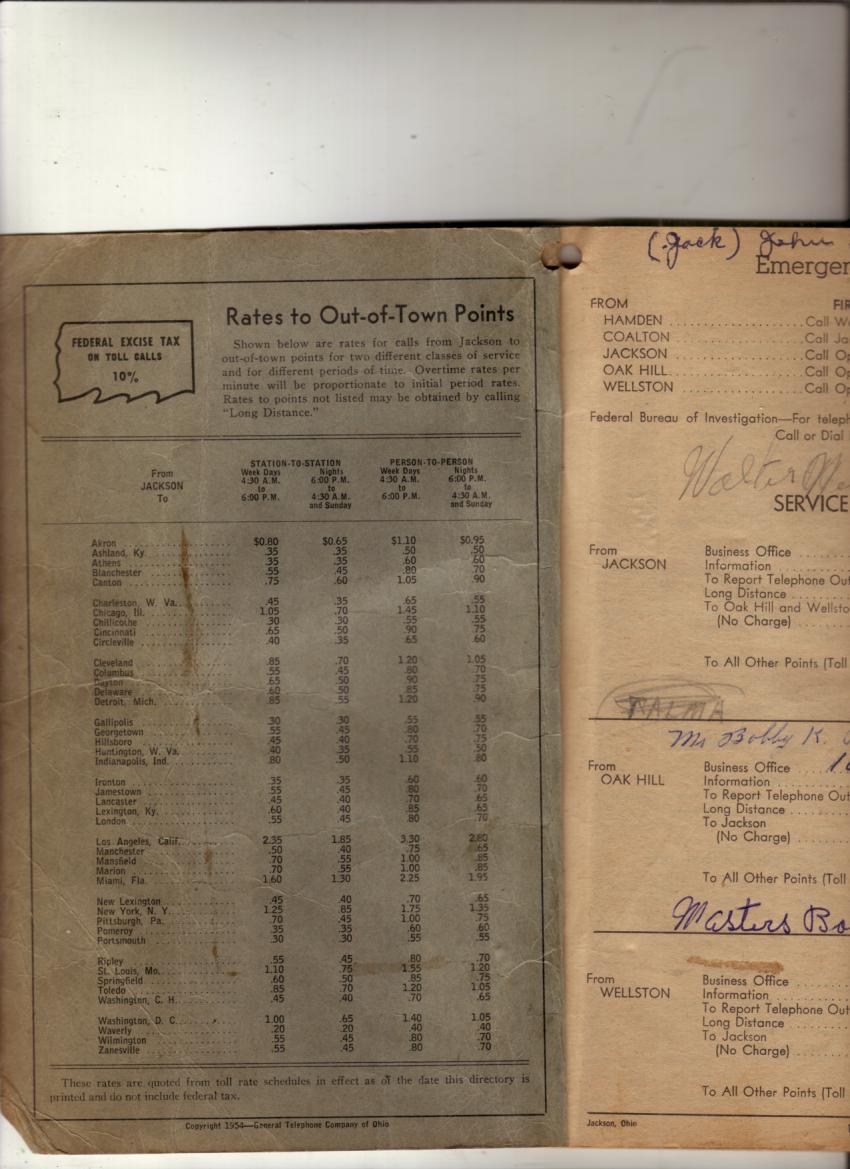 FEDERAL EXCISE TAX
ON TOLL CALLS
10%
Rates to Out-of-Town Points
Shown below are rates for calls from Jackson to
out-of-town points for two different classes of service
and for different periods of time. Overtime rates per
minute will be proportionate to initial period rates.
Rates to points not listed may be obtained by calling
"Long Distance."
From
JACKSON
To
STATION-TO-STATION PERSON-TO-PERSON
Week Days Nights Week Days Nights
4:30 A.M. 6:00 P.M. 4:30 A.M. 6:00 P.M.
to to to to
6:00 P.M. 4:30 A.M. 6:00 P.M. 4:30 A.M.
and Sunday and Sunday
Akron $0.80 $0.65 $1.10 $0.95
Ashland, Ky. .35 .35 .50 .50
Athens .35 .35 .60 .60
Blanchester .55 .45 .80 .70
Canton .75 .60 1.05 .90
Charleston, W. Va. .45 .35 .65 .55
Chicago, Ill. 1.05 .70 1.45 1.10
Chillicothe .30 .30 .55 .55
Cincinnati .65 .50 .90 .75
Circleville .40 .35 .65 .60
Cleveland .85 .70 1.20 1.05
Columbus .55 .45 .80 .70
Dayton .65 .50 .90 .75
Delaware .60 .50 .85 .75
Detroit, Mich. .85 .55 1.20 .90
Gallipolis .30 .30 .55 .55
Georgetown .55 .45 .80 .70
Hillsboro .45 .40 .70 .75
Huntington, W. Va. .40 .35 .55 .50
Indianapolis, Ind. .80 .50 1.10 .80
Ironton .35 .35 .60 .60
Jamestown .55 .45 .80 .70
Lancaster .45 .40 .70 .65
Lexington, Ky. .60 .40 .85 .65
London .55 .45 .80 .70
Los Angeles, Calif. 2.35 1.85 3.30 2.80
Manchester .50 .40 .75 .65
Mansfield .70 .55 1.00 .85
Marion .70 .55 1.00 .85
Miami, Fla. 1.60 1.30 2.25 1.95
New Lexington .45 .40 .70 .65
New York, N. Y. 1.25 .85 1.75 1.35
Pittsburgh, Pa. .70 .45 1.00 .75
Pomeroy .35 .35 .60 .60
Portsmouth .30 .30 .55 .55
Ripley .55 .45 .80 .70
St. Louis, Mo. 1.10 .75 1.55 1.20
Springfield .60 .50 .85 .75
Toledo .85 .70 1.20 1.05
Washington, C. H. .45 .40 .70 .65
Washington, D. C. 1.00 .65 1.40 1.05
Waverly .20 .20 .40 .40
Wilmington .55 .45 .80 .70
Zanesville .55 .45 .80 .70
These rates are quoted from toll rate schedules in effect as of the date this directory is
printed and do not include federal tax.
Copyright 1954—General Telephone Company of Ohio
(Jack) John
Emerger
FROM FIR
HAMDEN Call W
COALTON Call Ja
JACKSON Call Op
OAK HILL Call Op
WELLSTON Call Op
Federal Bureau of Investigation—For teleph
Call or Dial
Walter
SERVICE
From
JACKSON
Business Office
Information
To Report Telephone Out
Long Distance
To Oak Hill and Wellsto
(No Charge)
To All Other Points (Toll
Mr Bobby K.
From
OAK HILL
Business Office
Information
To Report Telephone Out
Long Distance
To Jackson
(No Charge)
To All Other Points (Toll
Masters Bo
From
WELLSTON
Business Office
Information
To Report Telephone Out
Long Distance
To Jackson
(No Charge)
To All Other Points (Toll
Jackson, Ohio